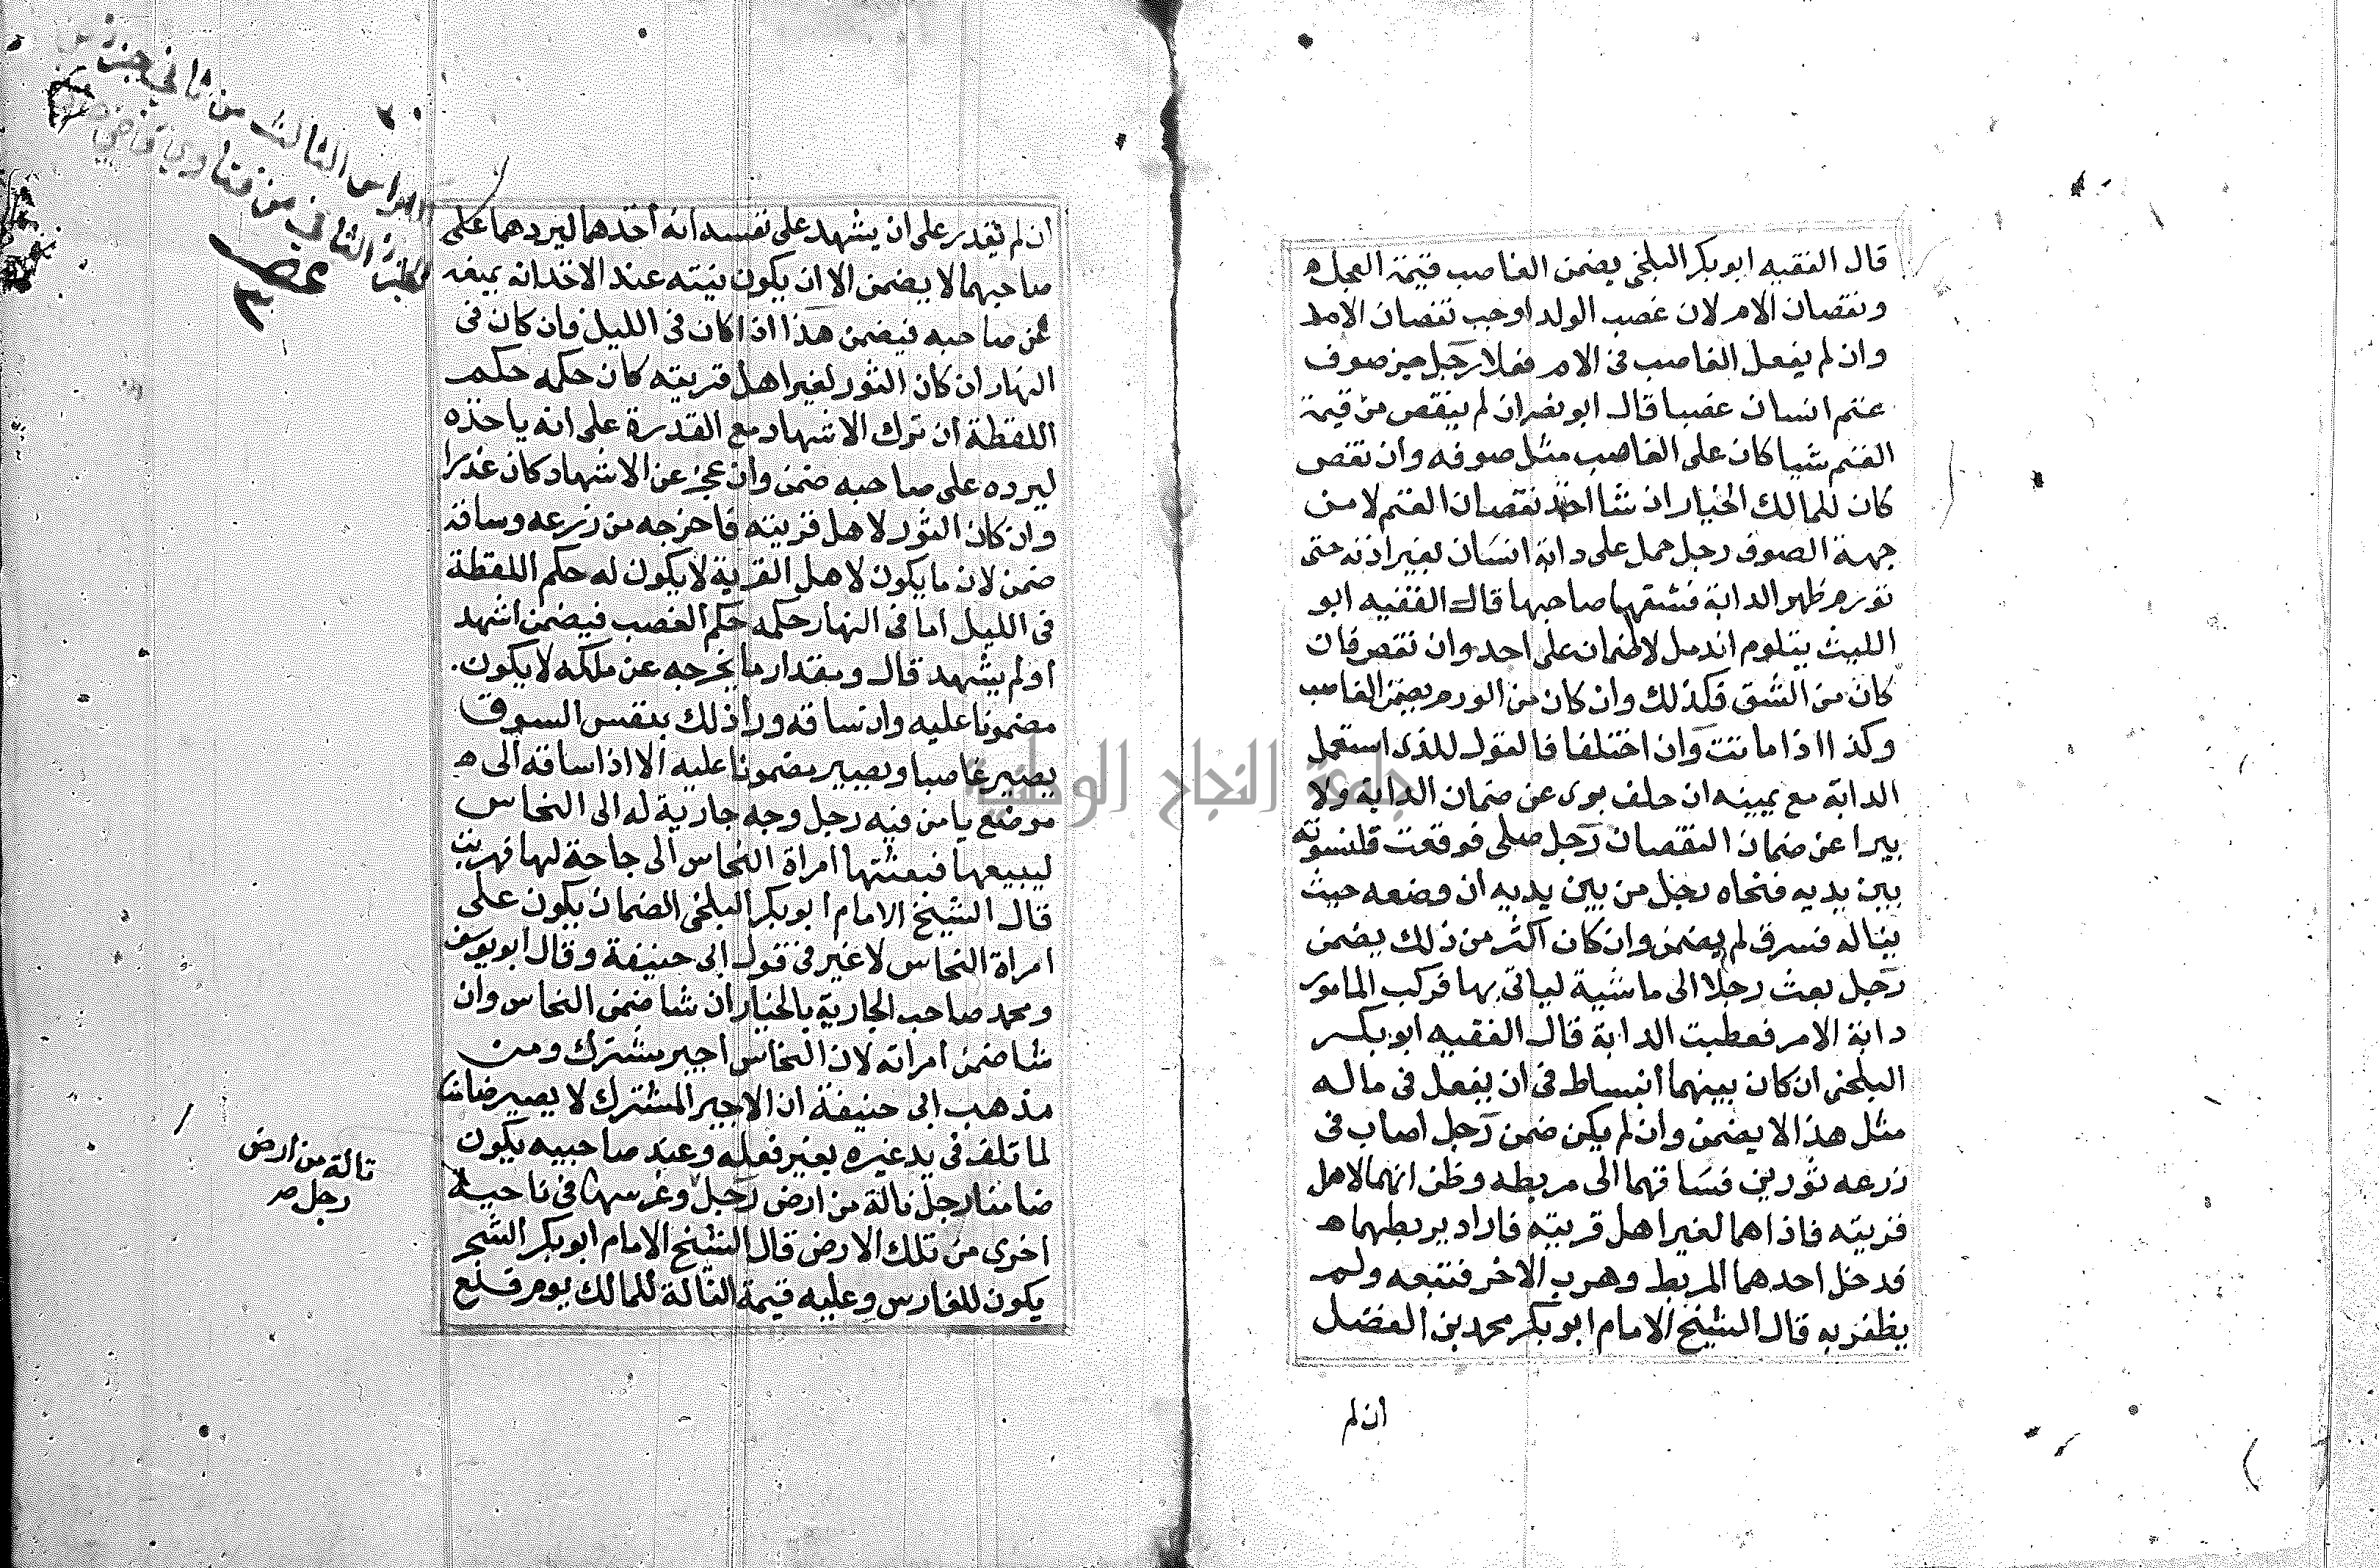 قال الفقيه ابو بكر البلخى يضمن الغاصب قيمة العجل
ونقصان الام لان غصب الولد اوجب نقصان الام
وان لم يفعل الغاصب فى الام فعلا رجل جز صوف
غنم انسان غصبا قال ابو نصر ان لم ينقص من قيمة
الغنم شيا كان على الغاصب مثل صوفه وان نقص
كان للمالك الخيار ان شا اخذ نقصان الغنم لا من
جهة الصوف رجل حمل على دابة انسان بغير اذنه حتى
تورم ظهر الدابة فشقها صاحبها قال الفقيه ابو
الليث يتلوم اندمل لا ضمان على احد وان نقص فان
كان من الشق فكذلك وان كان من الورم يضمن الغاصب
وكذا اذا ماتت وان اختلفا فالقول للذى استعمل
الدابة مع يمينه ان حلف برى عن ضمان الدابة ولا
يبرا عن ضمان النقصان رجل صلى فوقعت قلنسوته
بين يديه فنحاه رجل من بين يديه ان وضعه حيث
يناله فسرق لم يضمن وان كان اكثر من ذلك يضمن
رجل بعث رجلا الى ماشية لياتى بها فركب المامور
دابة الامر فعطبت الدابة قال الفقيه ابو بكر
البلخى ان كان بينهما انبساط فى ان يفعل فى ماله
مثل هذا لا يضمن وان لم يكن ضمن رجل اصاب فى
زرعه ثورين فساقهما الى مربطه وظن انهما لاهل
قريته فاذا هما لغير اهل قريته فاراد يربطهما
فدخل احدهما المربط وهرب الاخر فتبعه ولم
يظفر به قال الشيخ الامام ابو بكر محمد بن الفضل
ان لم
ان لم يقدر على ان يشهد على نفسه انه اخذهما ليردهما على
صاحبهما لا يضمن الا ان يكون نيته عند الاخذ انه يمنعه
عن صاحبه فيضمن هذا اذا كان فى الليل فان كان فى
النهار ان كان الثور لغير اهل قريته كان حكمه حكم
اللقطة ان ترك الاشهاد مع القدرة على انه ياخذه
ليرده على صاحبه ضمن وان عجز عن الاشهاد كان عذرا
وان كان الثور لاهل قريته فاخرجه من زرعه وساقه
ضمن لان ما يكون لاهل القرية لا يكون له حكم اللقطة
فى الليل اما فى النهار حكمه حكم الغصب فيضمن اشهد
او لم يشهد قال ومقدار ما يخرجه عن ملكه لا يكون
مضمونا عليه وان ساقه ورا ذلك بنفس السوق
يصير غاصبا ويصير مضمونا عليه الا اذا ساقه الى
موضع يامن فيه رجل وجه جارية له الى النخاس
ليبيعها فبعثتها امراة النخاس الى جاحة لها فهربت
قال الشيخ الامام ابو بكر البلخى الضمان يكون على
امراة النخاس لا غير فى قول ابى حنيفة وقال ابو يوسف
ومحمد صاحب الجارية بالخيار ان شا ضمن النخاس وان
شا ضمن امراته لان النخاس اجير مشترك ومن
مذهب ابى حنيفة ان الاجير المشترك لا يصير ضامنا
لما تلف فى يد غيره بغير فعله وعند صاحبيه يكون
ضامنا رجل تالة من ارض رجل وغرسها فى ناحية
اخرى من تلك الارض قال الشيخ الامام ابو بكر الشجر
يكون للغارس وعليه قيمة التالة للمالك يوم قلع
تالة من ارض
رجل صر
الكراس الثالث من ثانى جزء
الجزء الثانى من فتاوى قاضى
جامعة النجاح الوطنية